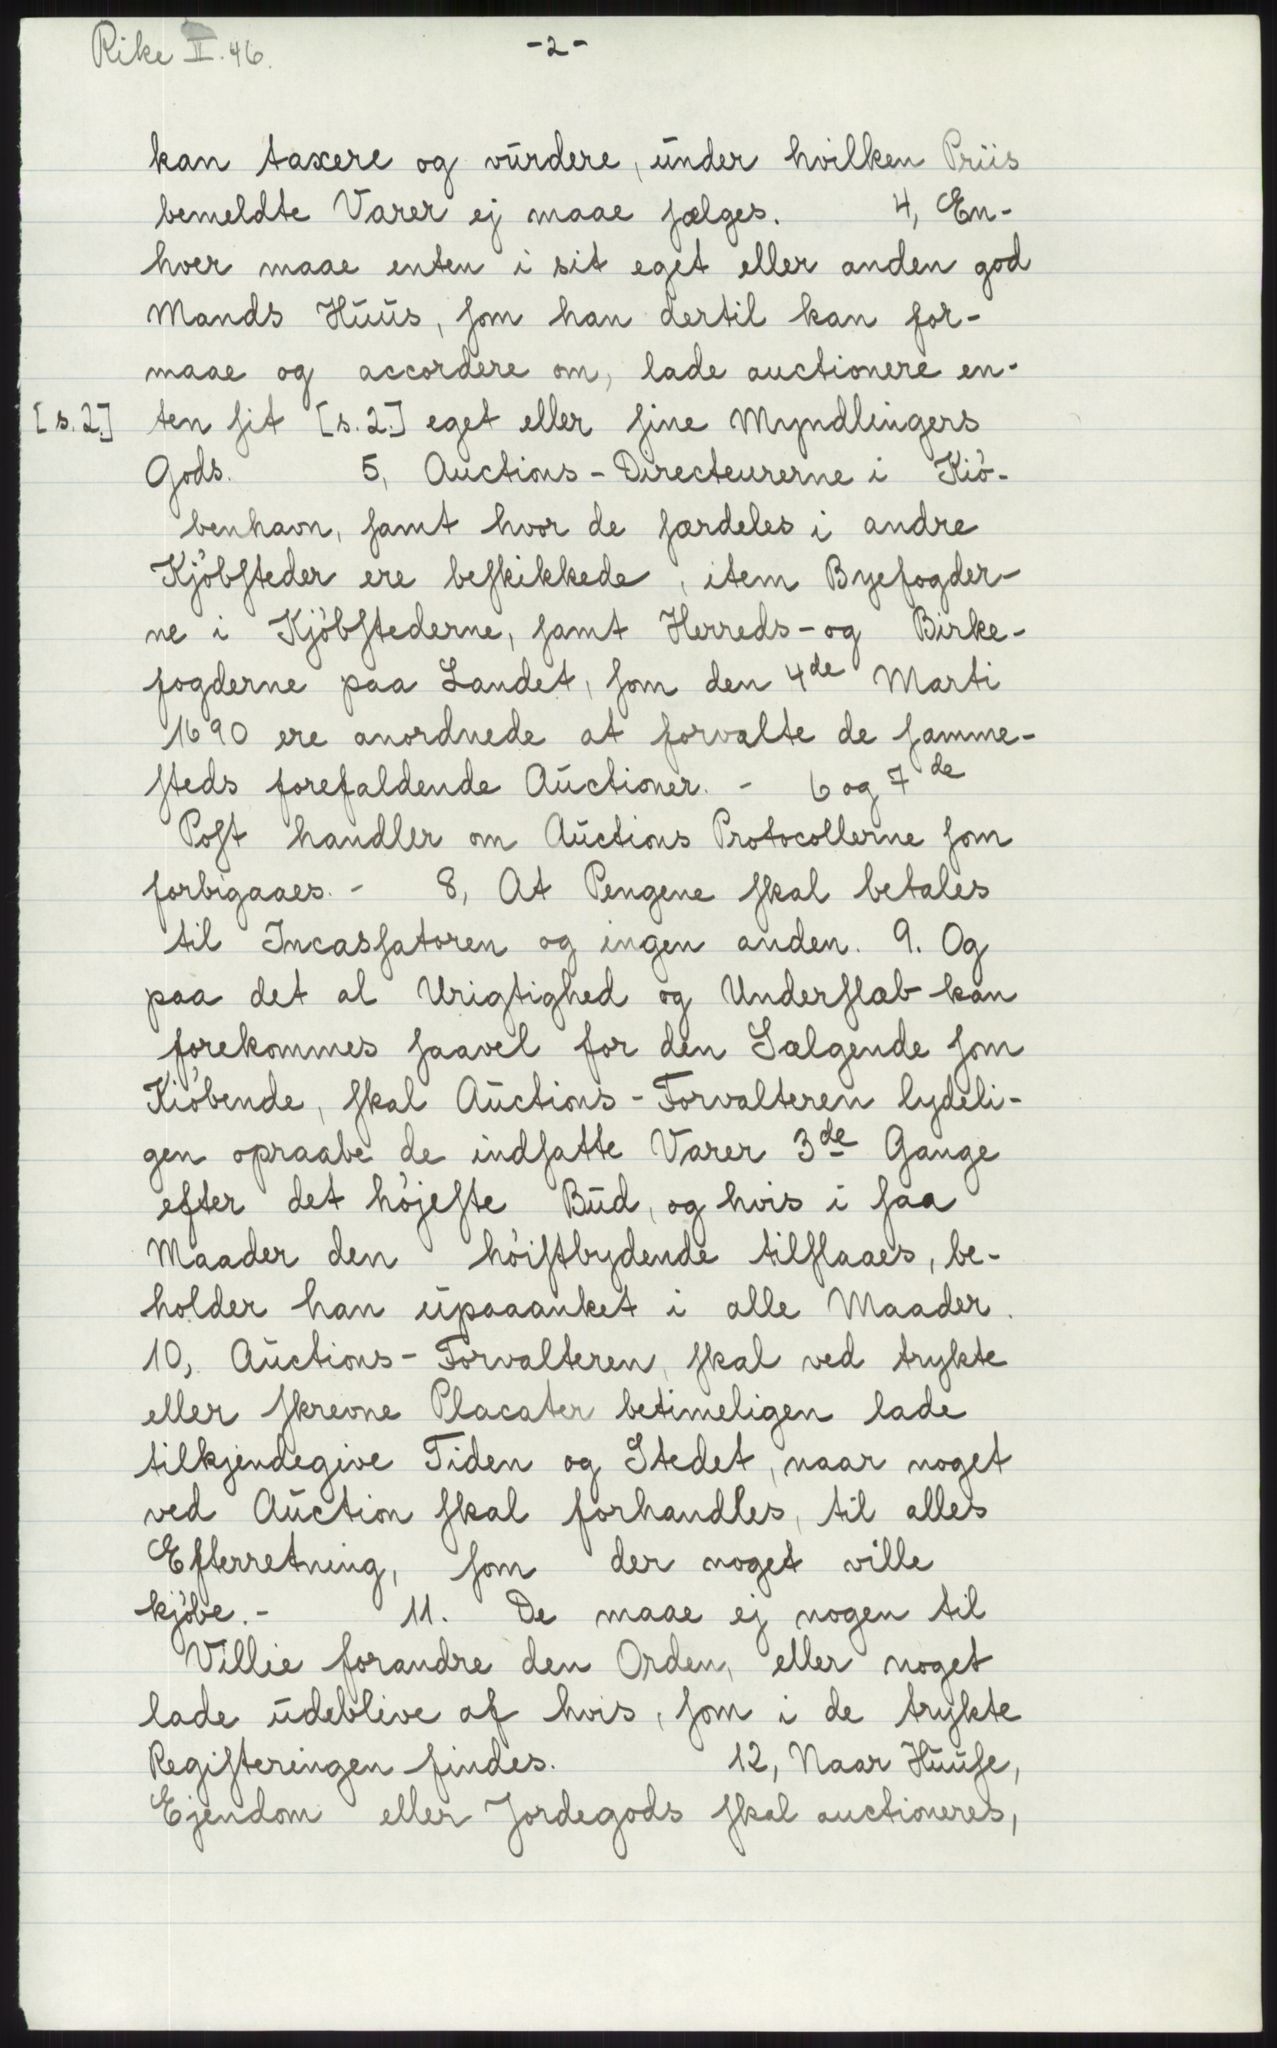 Rike II. 46.
-2-
kan taxere og vurdere, under hvilken Priis
bemeldte Varer ej maae sælges. 4, En-
hver maae enten i sit eget eller anden god
Mands Huus, som han dertil kan for-
maae og accordere om, lade auctionere en-
[s. 2.] ten sit [s. 2.] eget eller sine Myndlingers
Gods. 5, Auctions-Directeurerne i Kiö-
benhavn, samt hvor de særdeles i andre
Kjöbsteder ere beskikkede, item Byefogder-
ne i Kjöbstederne, samt Herreds- og Birke-
fogderne paa Landet, som den 4de Marti
1690 ere anordnede at forvalte de samme-
steds forefaldende Auctioner. - 6 og 7de
Post handler om Auctions Protocollerne som
forbigaaes. - 8, At Pengene skal betales
til Incassatoren og ingen anden. 9. Og
paa det al Urigtighed og Underslæb kan
forekommes saavel for den Sælgende som
Kiöbende, skal Auctions-Forvalteren lydeli-
gen opraabe de indsatte Varer 3de Gange
efter det höjeste Bud, og hvis i saa
Maader den höistbydende tilslaaes, be-
holder han upaaanket i alle Maader.
10, Auctions-Forvalteren, skal ved trykte
eller skrevne Placater betimeligen lade
tilkjendegive Tiden og Stedet, naar noget
ved Auction skal forhandles, til alles
Efterretning, som der noget ville
kjöbe. - 11. De maae ej nogen til
Villie forandre den Orden, eller noget
lade udeblive af hvis, som i de trykte
Registeringen findes. 12, Naar Huuse,
Ejendom eller Jordegods skal auctioneres,